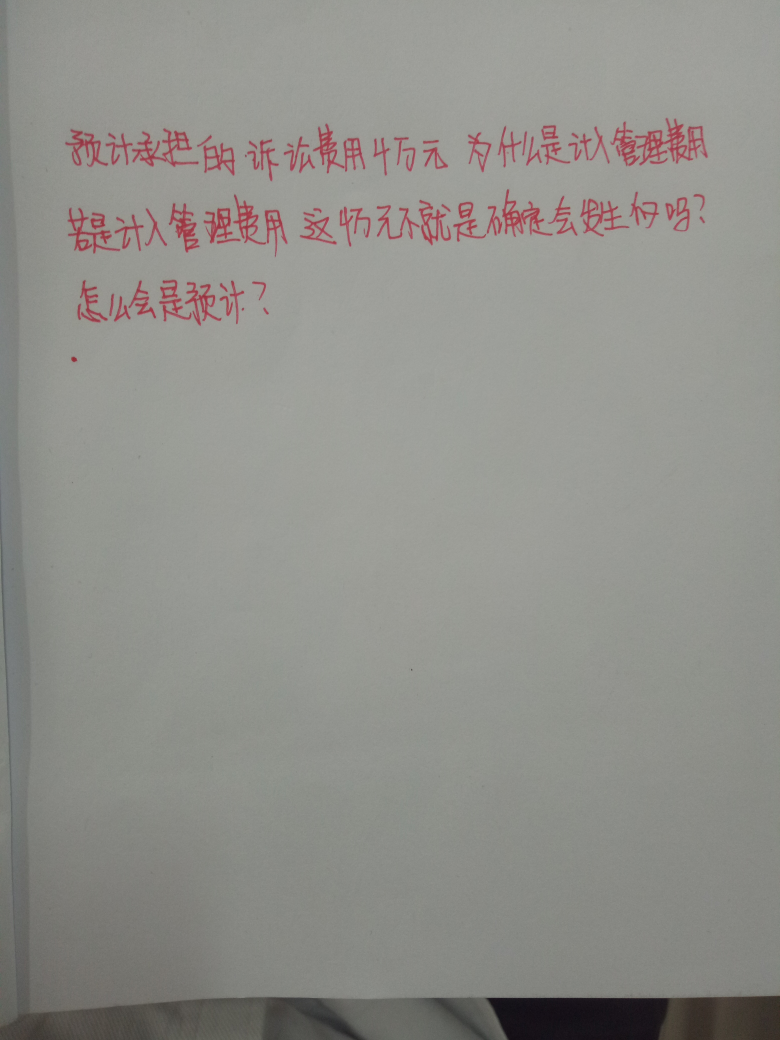 预计承担的诉讼费用4万元 为什么是计入管理费用
若是计入管理费用 这4万元不就是确定会发生的吗?
怎么会是预计?